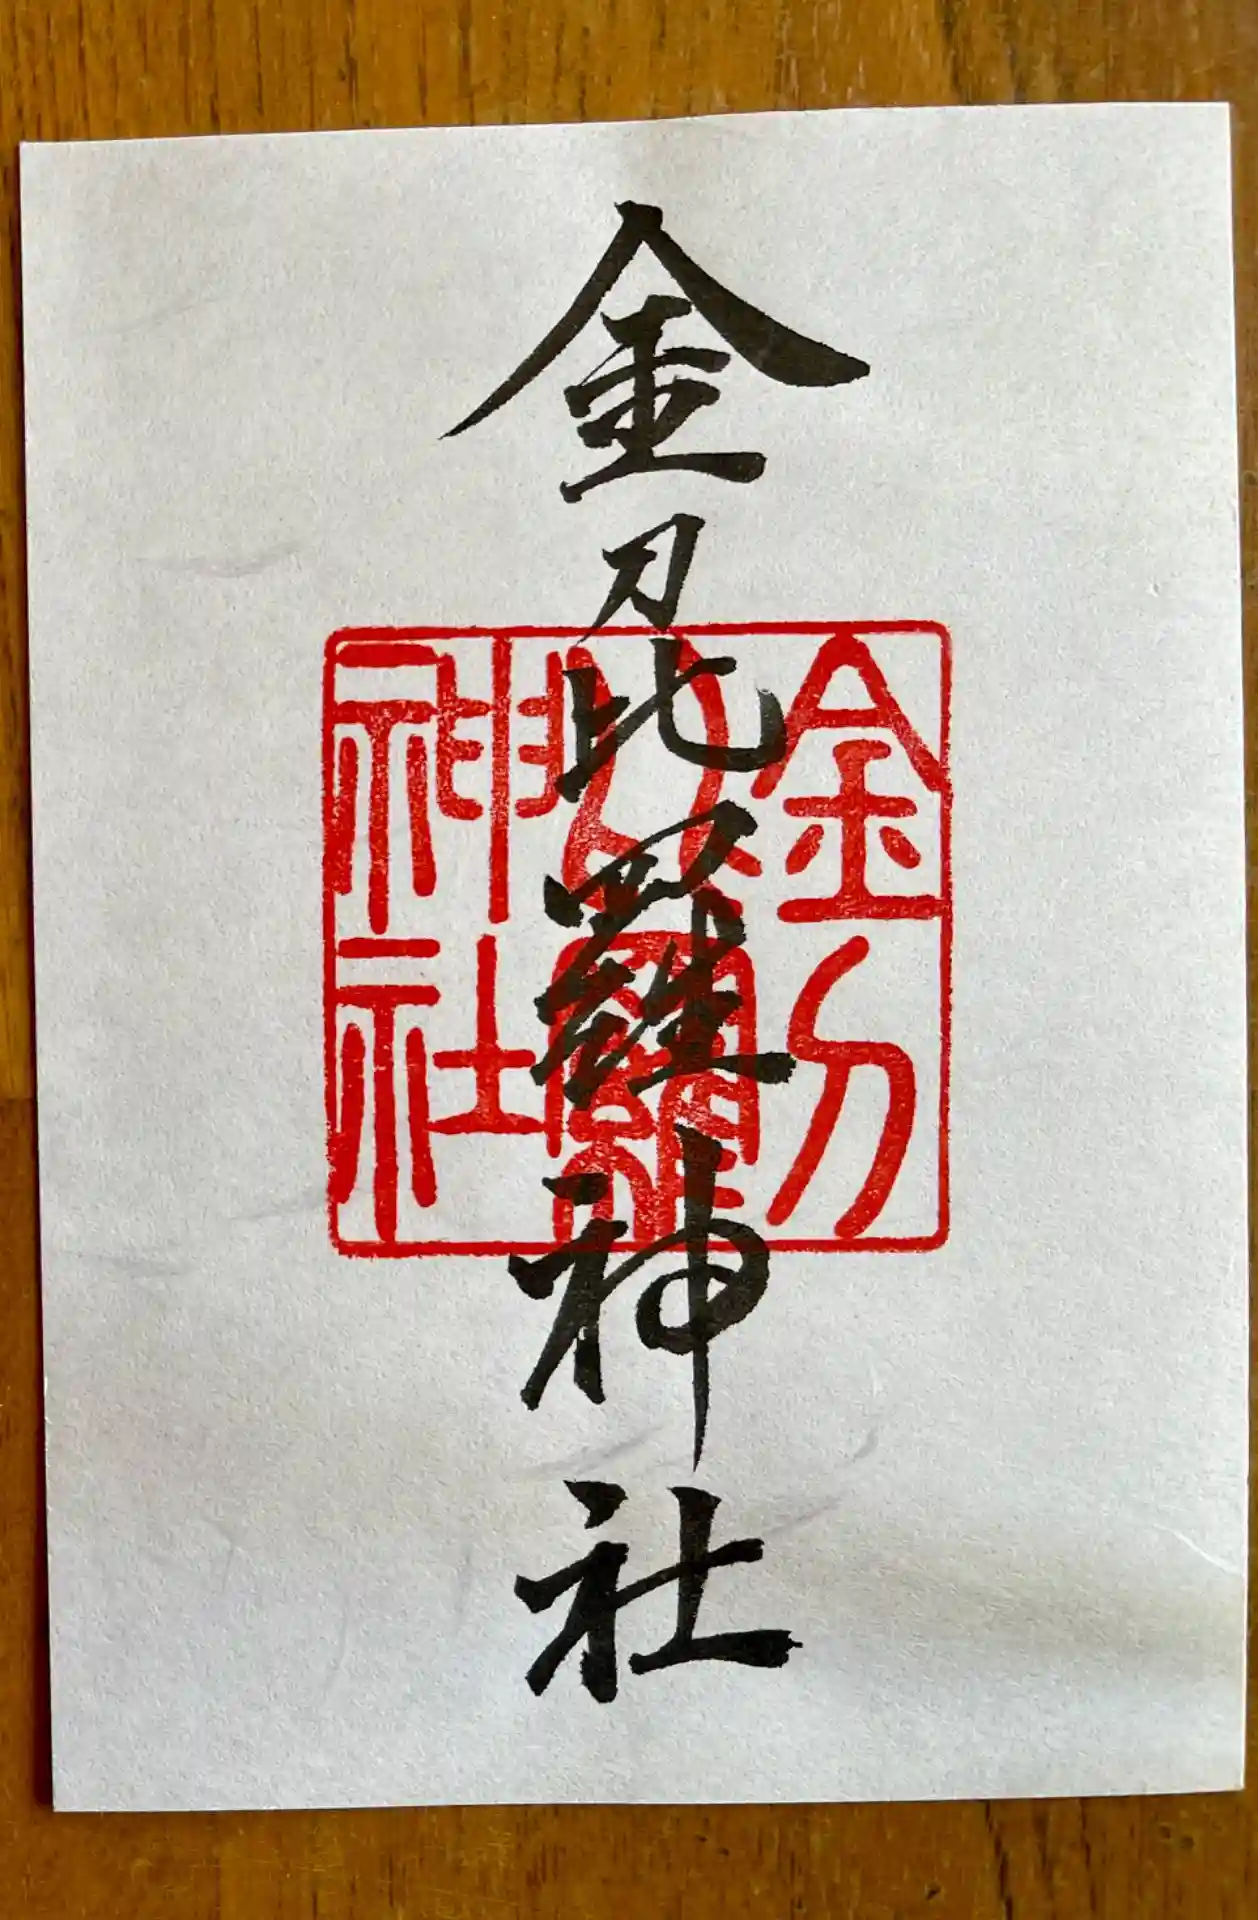 金刀比羅神社
金刀
比羅
神社